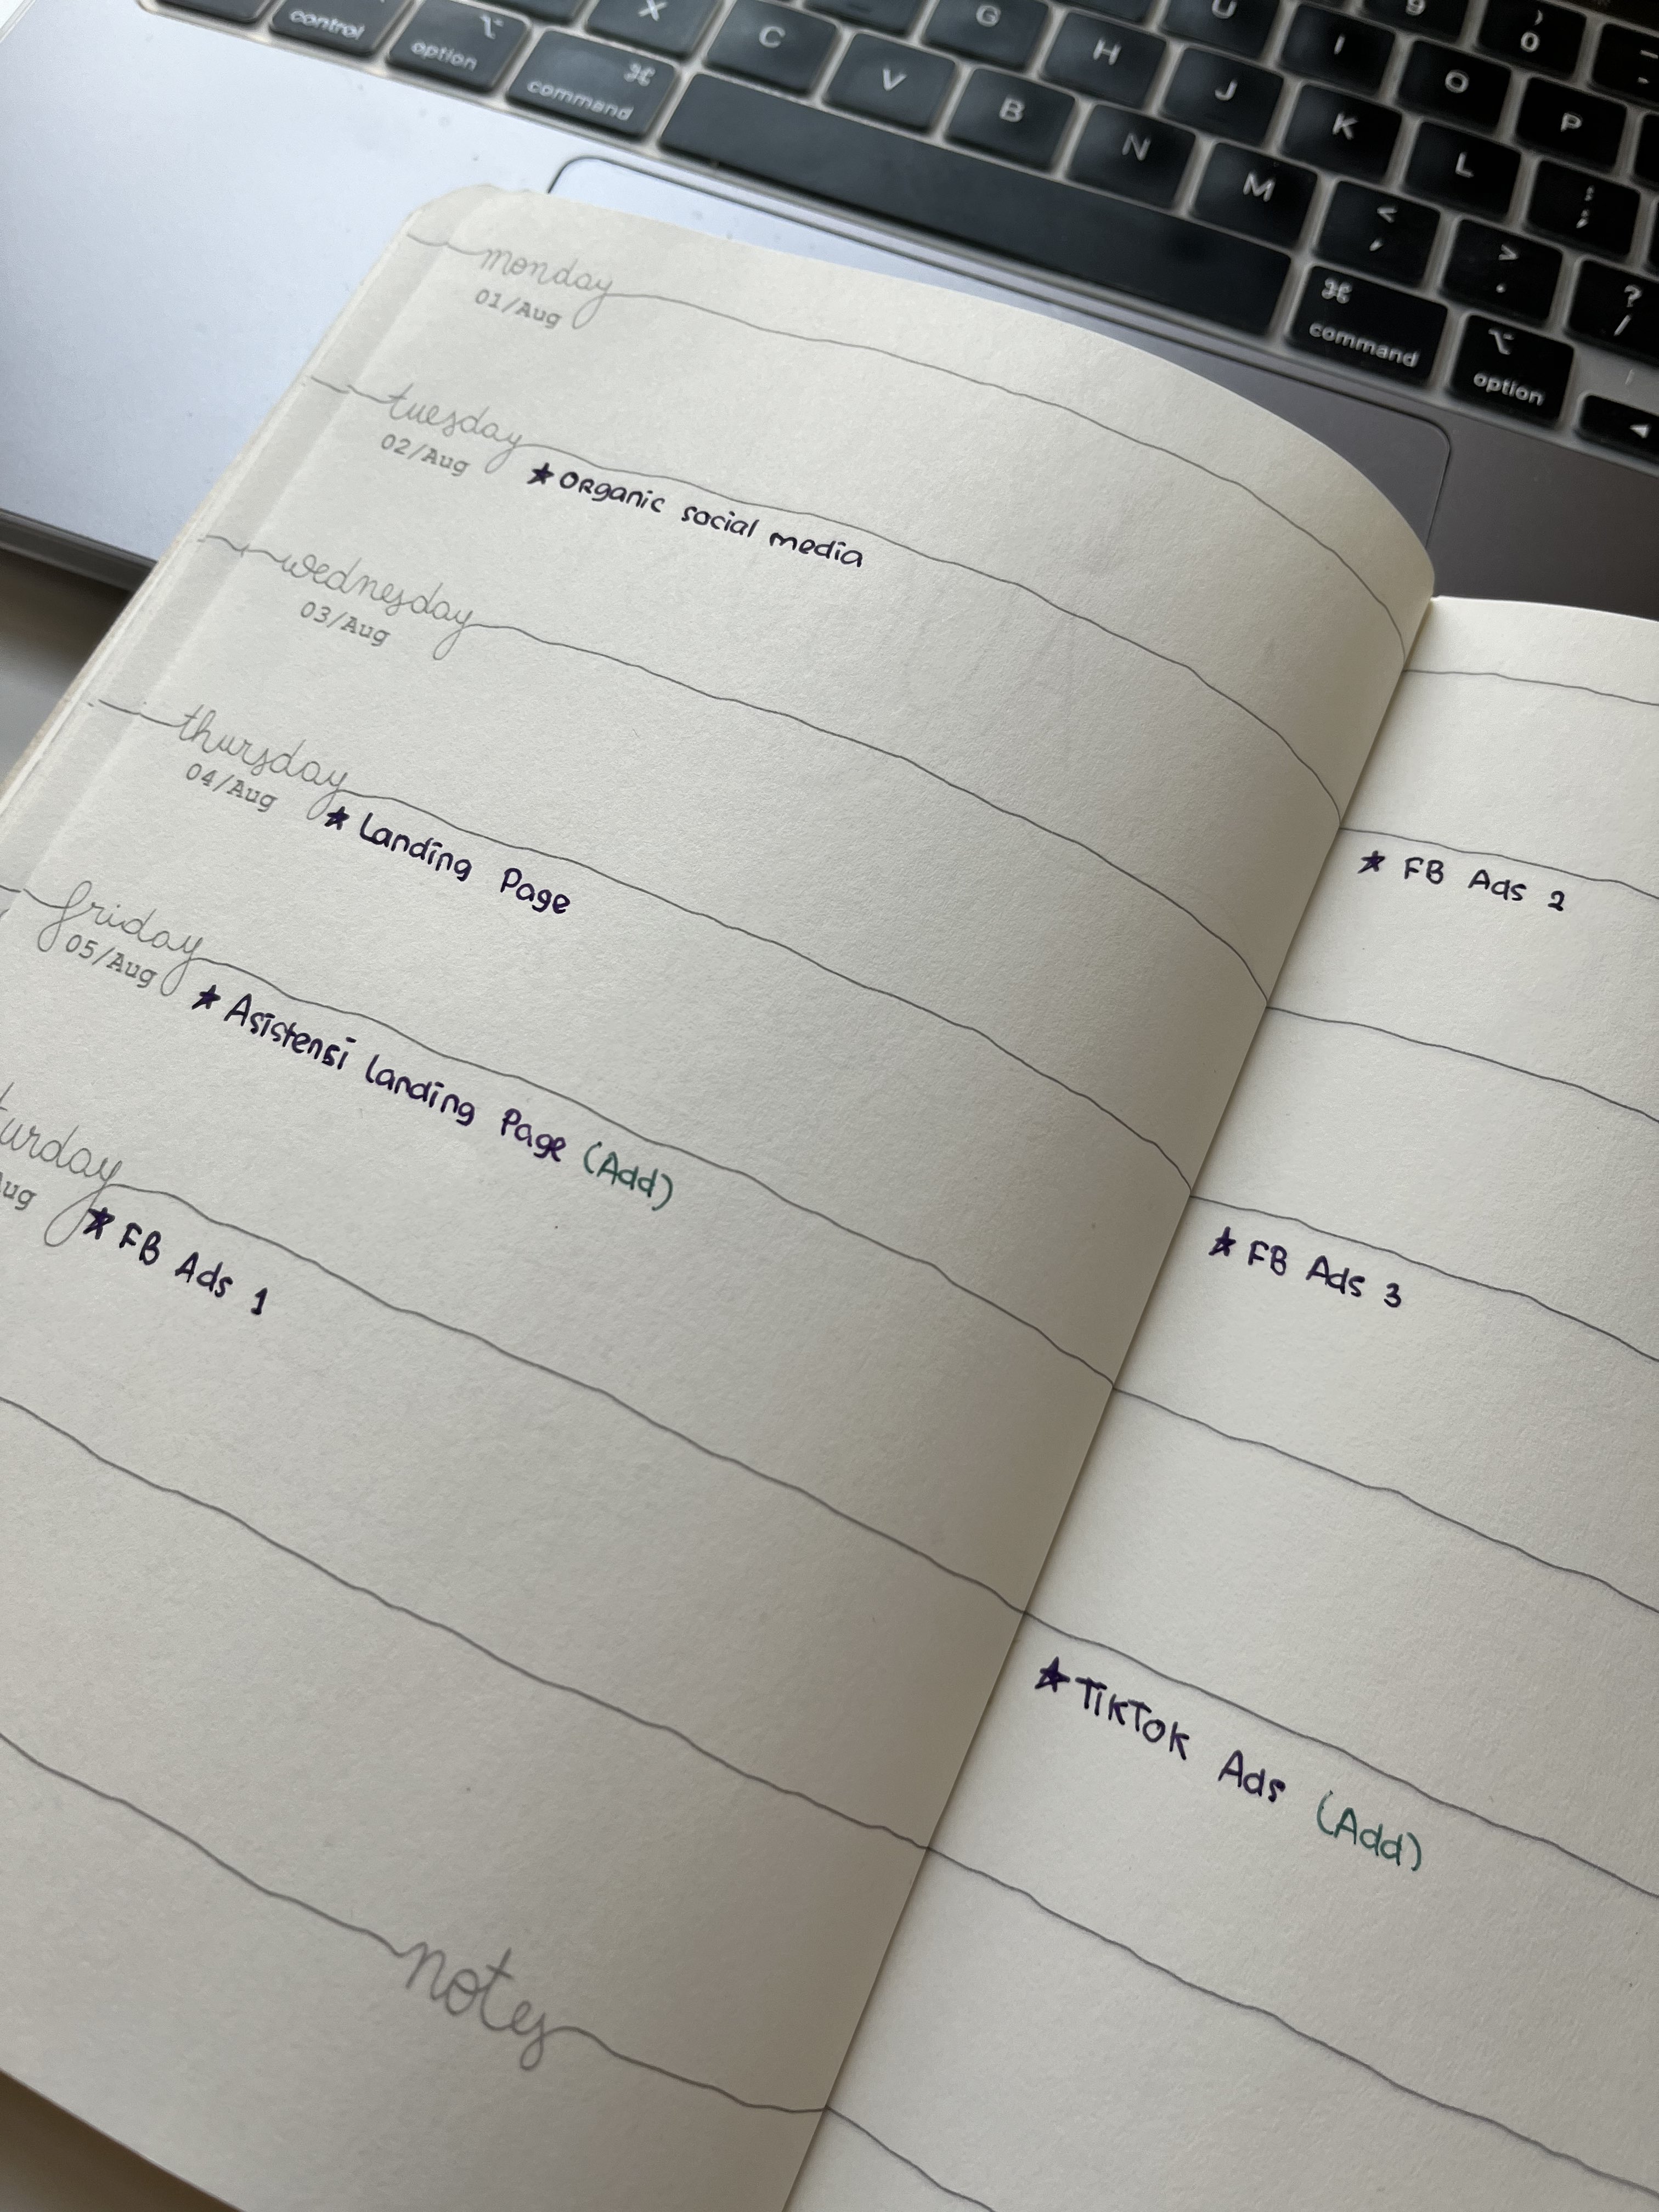 control
option
command
X
C
V
G
B
H
N
U
J
M
I
K
9
O
L
<
,
)
0
P
:
;
>
.
?
/
command
option
monday
01/Aug
tuesday
02/Aug
★ Organic social media
wednesday
03/Aug
thursday
04/Aug
★ Landing Page
friday
05/Aug
★ Asistensi Landing Page (Add)
turday
Aug
★ FB Ads 1
notes
★ FB Ads 2
★ FB Ads 3
★ TikTok Ads (Add)